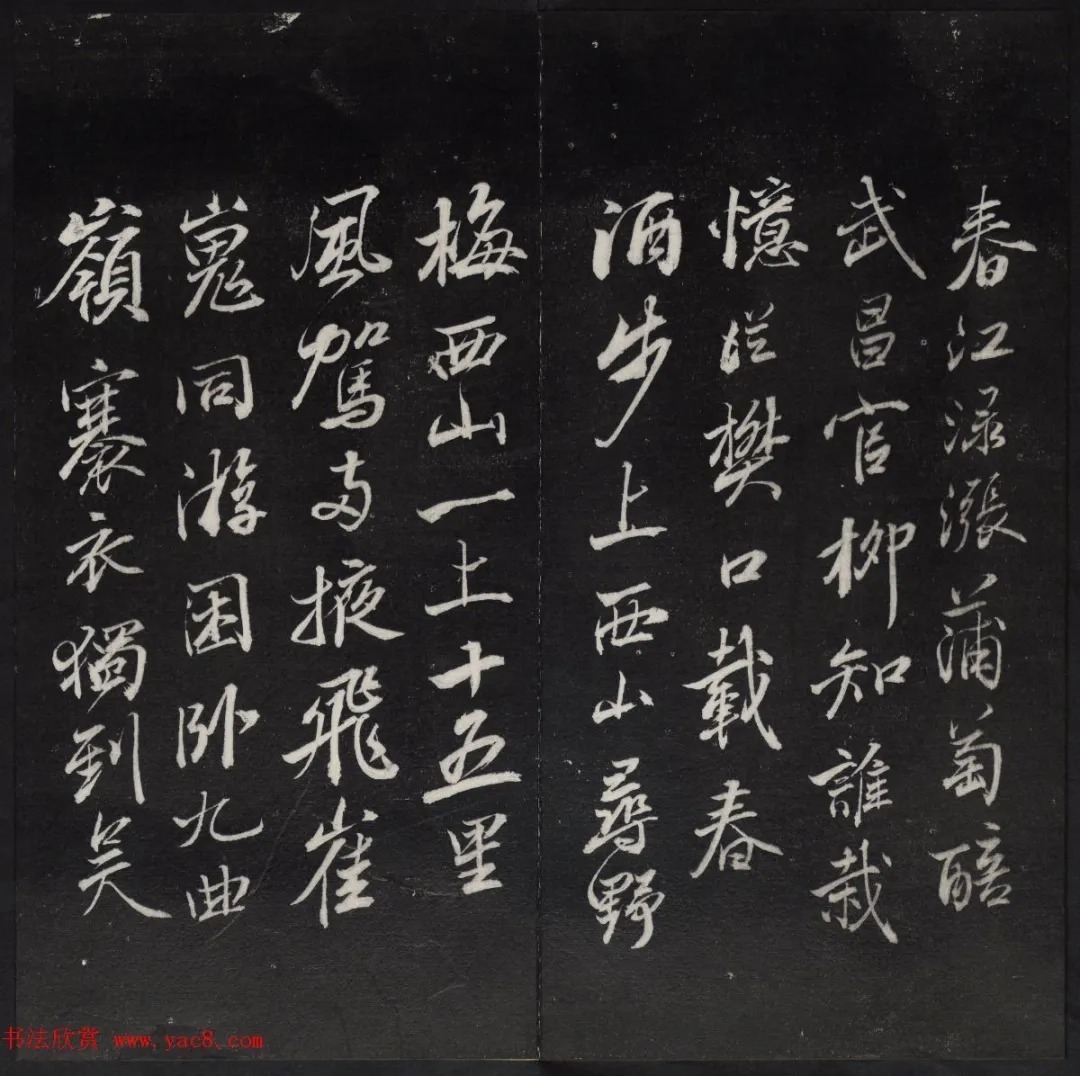 春江渌漲蒲萄醅
武昌官柳知誰栽
憶從樊口載春
酒步上西山尋野
梅西山一上十五里
風駕兩掖飛崔
嵬同游困卧九曲
嶺褰衣獨到吳
书法欣赏 www.yac8.com